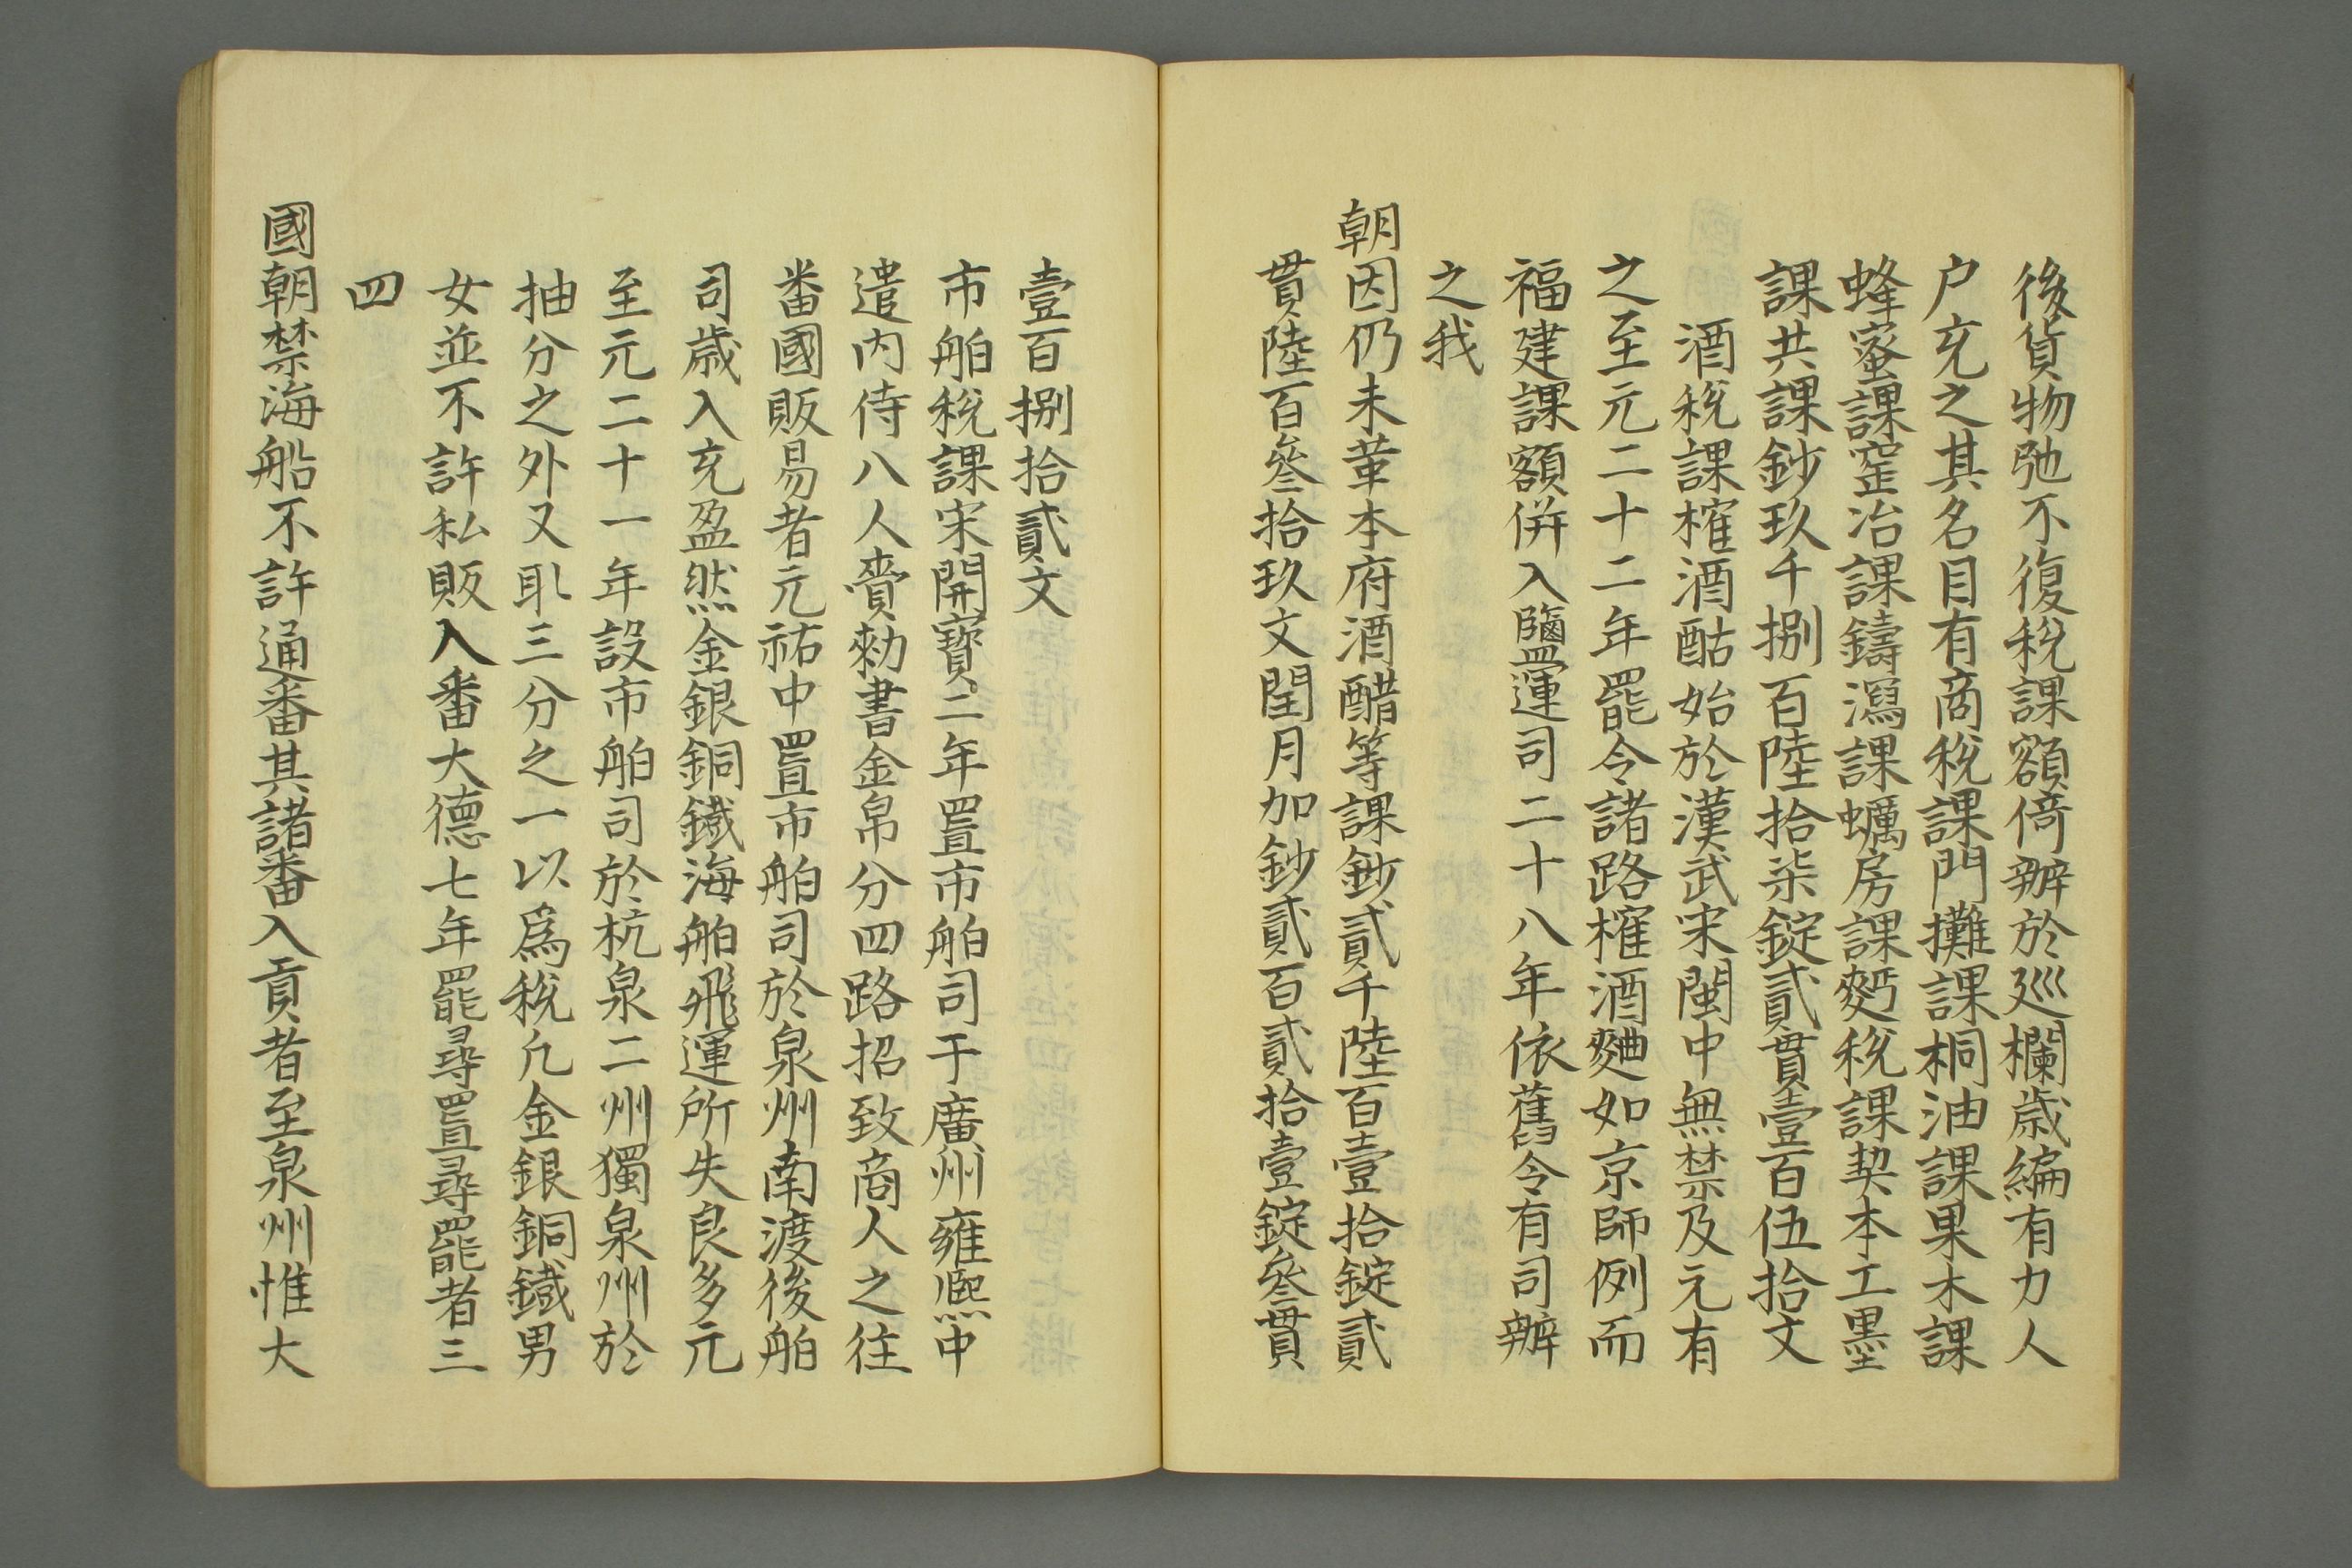 後貨物弛不復稅課額倚辦於廵欄歲編有力人
户充之其名目有商稅課門攤課桐油課果木課
蜂蜜課窑冶課鑄瀉課蠣房課麫稅課契本工墨
課共課鈔玖千捌百陸拾柒錠貳貫壹百伍拾文
酒稅課榷酒酤始於漢武宋閩中無禁及元有
之至元二十二年罷令諸路榷酒麯如京師例而
福建課額併入鹽運司二十八年依舊令有司辦
之我
朝因仍未革本府酒醋等課鈔貳千陸百壹拾錠貳
貫陸百叄拾玖文閏月加鈔貳百貳拾壹錠叄貫
壹百捌拾貳文
市舶稅課宋開寳二年置市舶司于廣州雍熙中
遣内侍八人賫勑書金帛分四路招致商人之往
番國販易者元祐中置市舶司於泉州南渡後舶
司歲入充盈然金銀銅鐵海舶飛運所失良多元
至元二十一年設市舶司於杭泉二州獨泉州於
抽分之外又取三分之一以爲稅凢金銀銅鐵男
女並不許私販入番大德七年罷尋置尋罷者三
四
國朝禁海船不許通番其諸番入貢者至泉州惟大